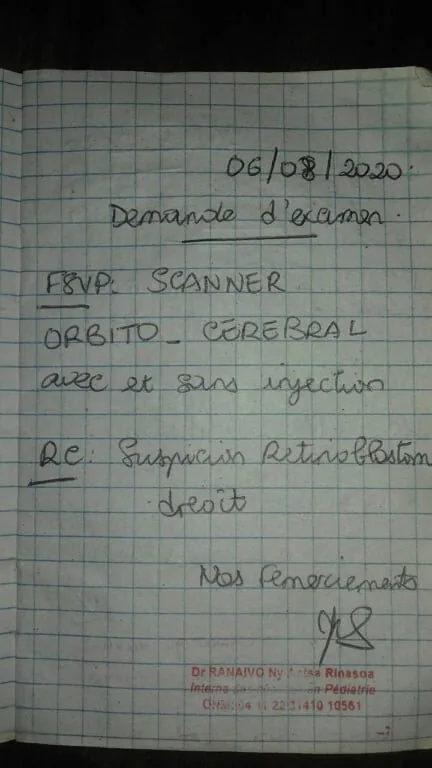 06/08/2020.
Demande d'examen.
FSVP: SCANNER
ORBITO_ CÉRÉBRAL
avec et sans injection
RC: Suspicion Retinoblastom
droit
Nos remerciements
Dr RANAIVO Ny Rinasoa
Interne en Pédiatrie